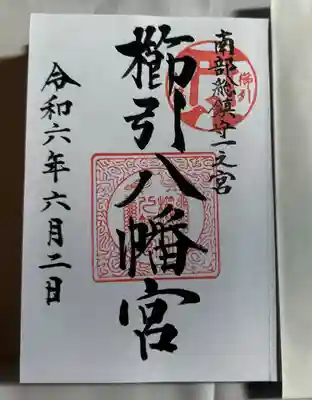 南部総鎮守一之宮
櫛引
櫛引八幡宮
令和六年六月二日